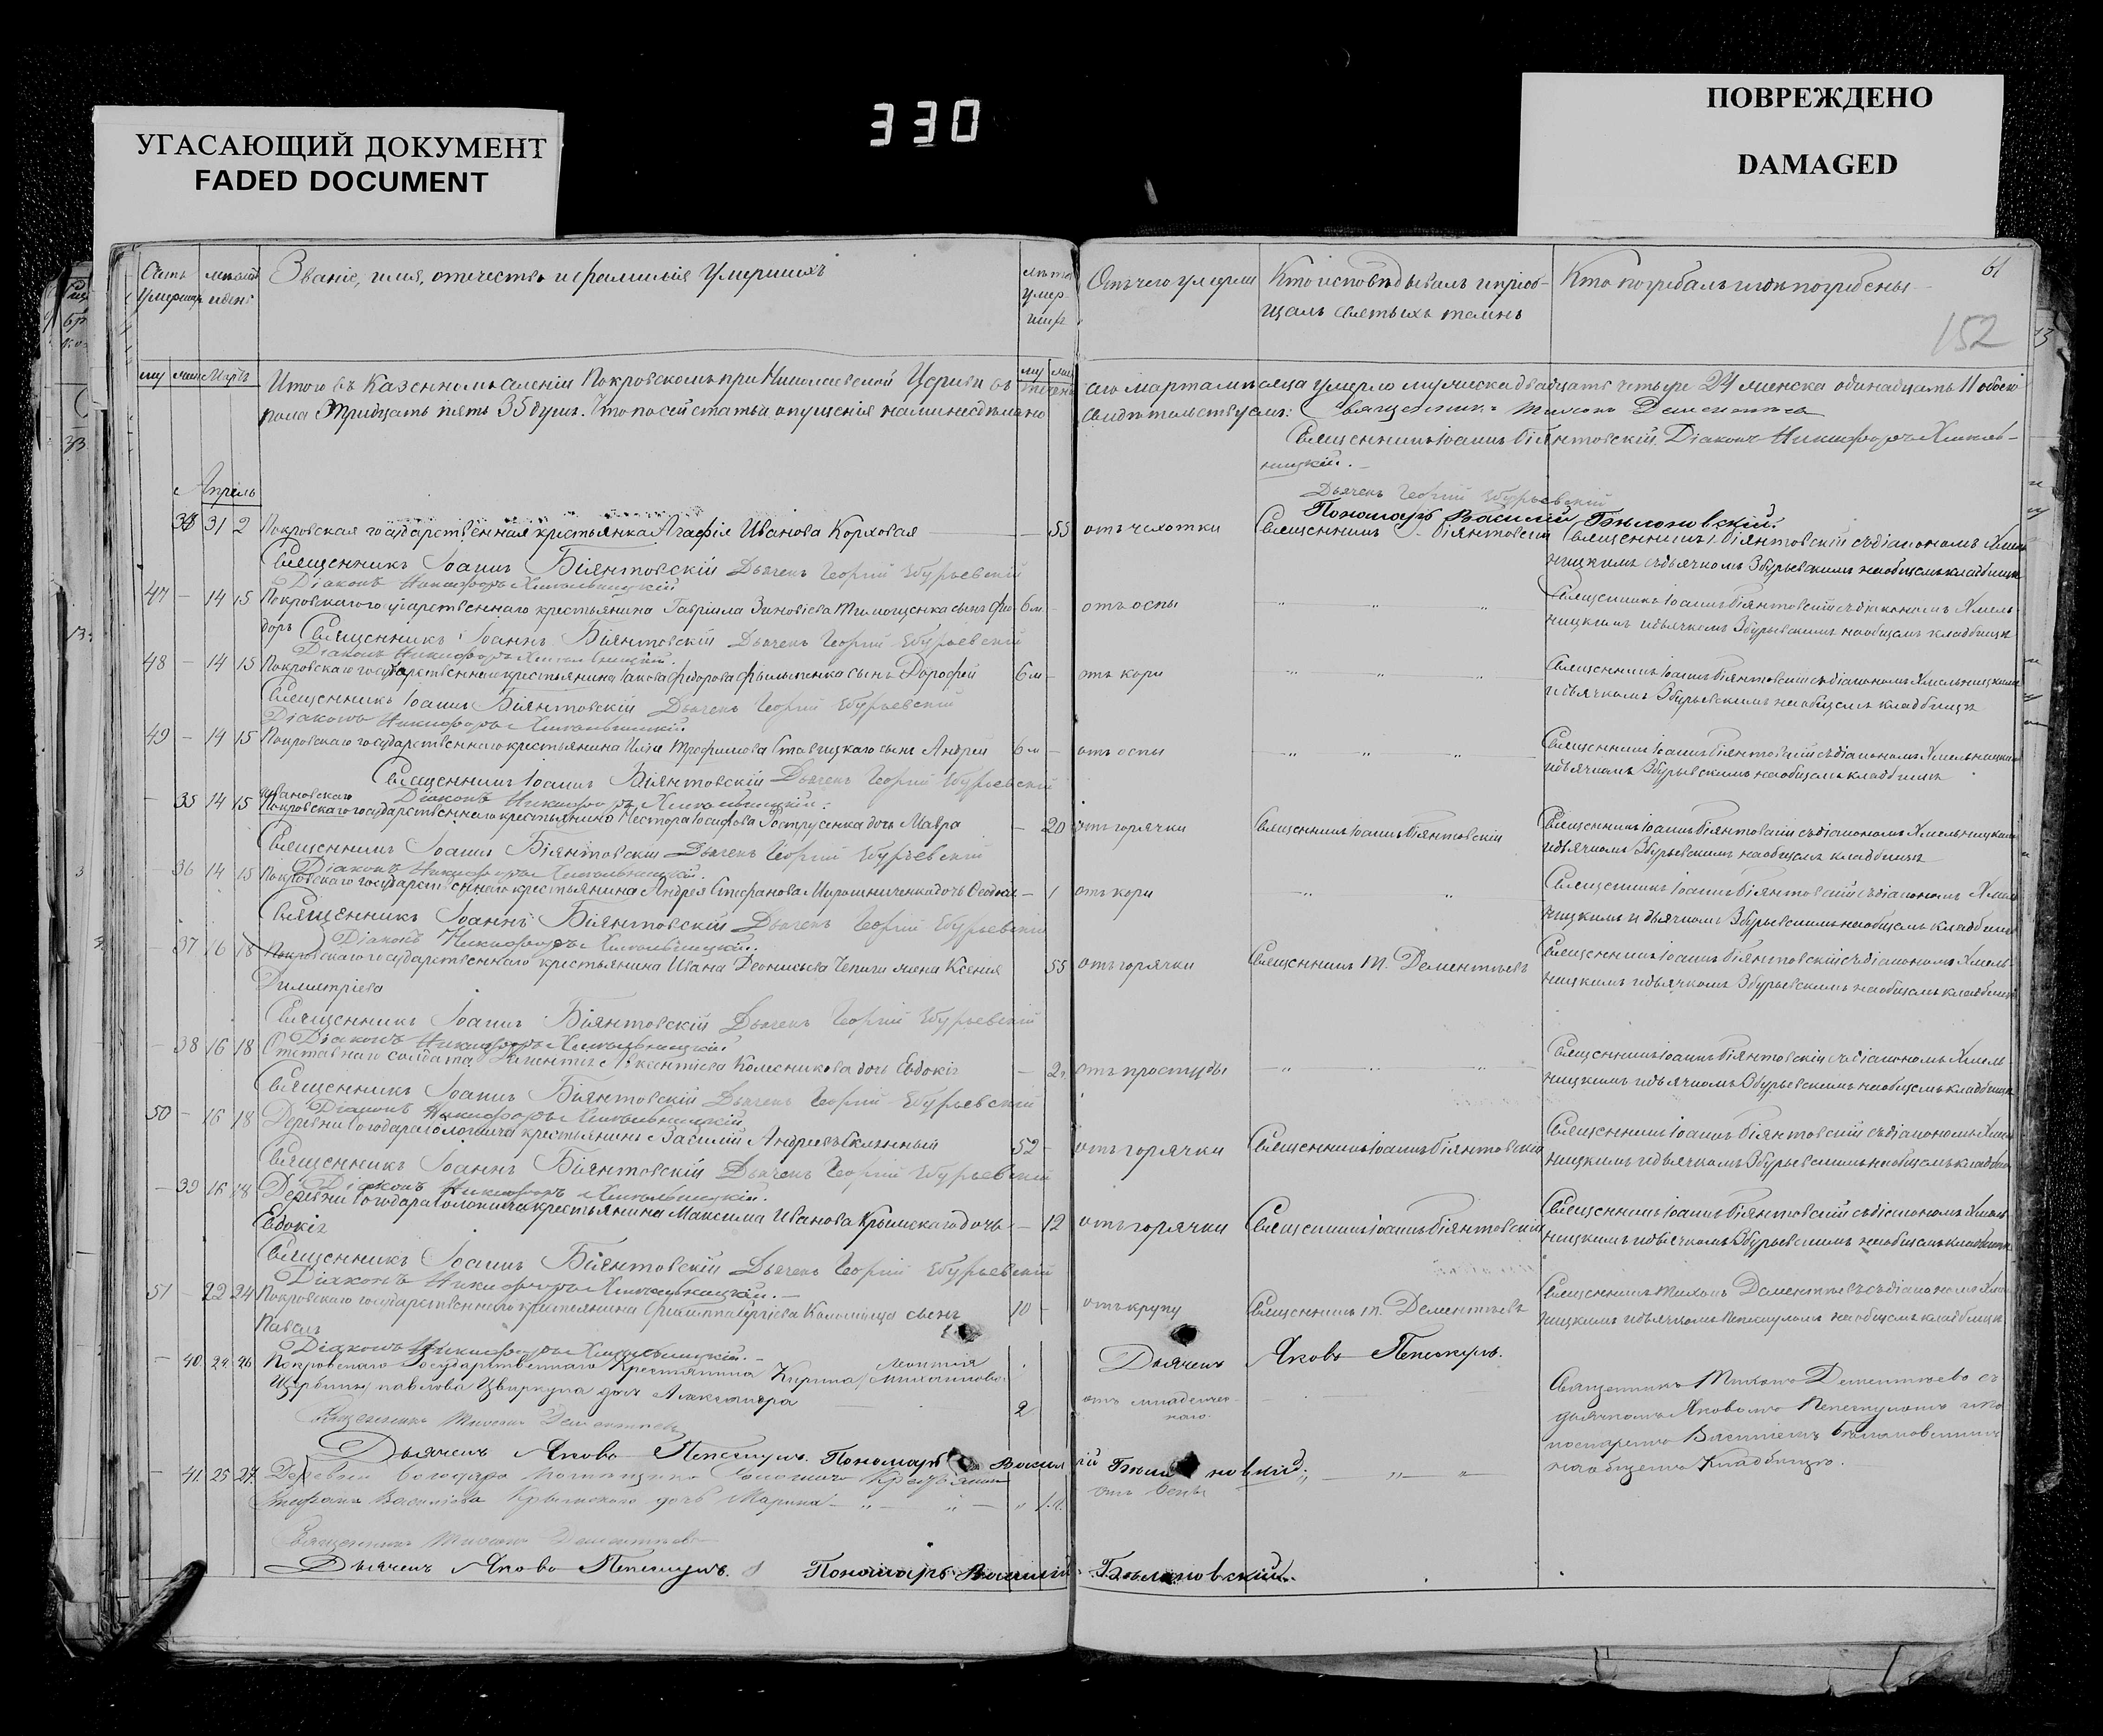 УГАСАЮЩИЙ ДОКУМЕНТ
FADED DOCUMENT
330
ПОВРЕЖДЕНО
DAMAGED
61
152
Счетъ умершихъ
мѣсяцъ и день
Званіе, имя, отечество и фамилія умершихъ
лѣта умершихъ
Отъ чего умерли
Кто исповѣдывалъ и пріобщалъ святыхъ таинъ
Кто погребалъ и гдѣ погребены
Мартъ
Итого въ Казенномъ селеніи Покровскомъ при Николаевской Церкви въ теченіе
сего марта мѣсяца умерло мужеска двадцать четыре 24 женска одинадцать 11 обоего
пола тридцать пять 35 душъ. Что по сей статьи опущенія нами несдѣлано
свидѣтельствуемъ: Священникъ Тихонъ Дементьевъ
Священникъ Іоаннъ Біянтовскій. Діаконъ Никифоръ Хмельницкій.
Дьячекъ Георгій Збурьевскій
Пономарь Василій Бѣлоновскій.
Апрѣль
31 2 Покровская государственная крестьянка Агафія Иванова Корховая — 55 отъ чахотки Священникъ І. Біянтовскій Священникъ І. Біянтовскій съ діакономъ Хмельницкимъ и дьячкомъ Збурьевскимъ на общемъ кладбищѣ
Священникъ Іоаннъ Біянтовскій Дьячекъ Георгій Збурьевскій
Діаконъ Никифоръ Хмельницкій
47 — 14 15 Покровскаго государственнаго крестьянина Гавріила Зиновіева Тимощенка сынъ Фіодоръ 6 м — отъ оспы
Священникъ Іоаннъ Біянтовскій съ діакономъ Хмельницкимъ и дьячкомъ Збурьевскимъ на общемъ кладбищѣ
Священникъ Іоаннъ Біянтовскій Дьячекъ Георгій Збурьевскій
Діаконъ Никифоръ Хмельницкій.
48 — 14 15 Покровскаго государственнаго крестьянина Іакова Федорова сынъ Дорофей 6 м — отъ кори
Священникъ Іоаннъ Біянтовскій съ діакономъ Хмельницкимъ и дьячкомъ Збурьевскимъ на общемъ кладбищѣ
Священникъ Іоаннъ Біянтовскій Дьячекъ Георгій Збурьевскій
Діаконъ Никифоръ Хмельницкій.
49 — 14 15 Покровскаго государственнаго крестьянина Иліи Трофимова Ставицкаго сынъ Андрей 6 м — отъ оспы
Священникъ Іоаннъ Біянтовскій съ діакономъ Хмельницкимъ и дьячкомъ Збурьевскимъ на общемъ кладбищѣ
Священникъ Іоаннъ Біянтовскій Дьячекъ Георгій Збурьевскій
Діаконъ Никифоръ Хмельницкій.
— 35 14 15 Ивановскаго Покровскаго государственнаго крестьянина Нестора Іосифова дочь Мавра — 20 отъ горячки Священникъ Іоаннъ Біянтовскій
Священникъ Іоаннъ Біянтовскій съ діакономъ Хмельницкимъ и дьячкомъ Збурьевскимъ на общемъ кладбищѣ
Священникъ Іоаннъ Біянтовскій Дьячекъ Георгій Збурьевскій
Діаконъ Никифоръ Хмельницкій.
— 36 14 15 Покровскаго государственнаго крестьянина Андрея Стефанова Мирошниченка дочь — 1 отъ кори
Священникъ Іоаннъ Біянтовскій съ діакономъ Хмельницкимъ и дьячкомъ Збурьевскимъ на общемъ кладбищѣ
Священникъ Іоаннъ Біянтовскій Дьячекъ Георгій Збурьевскій
Діаконъ Никифоръ Хмельницкій.
— 37 16 18 Покровскаго государственнаго крестьянина Ивана Деонисьева Чепиги жена Ксенія Димитріева 55 отъ горячки Священникъ Т. Дементьевъ
Священникъ Іоаннъ Біянтовскій съ діакономъ Хмельницкимъ и дьячкомъ Збурьевскимъ на общемъ кладбищѣ
Священникъ Іоаннъ Біянтовскій Дьячекъ Георгій Збурьевскій
Діаконъ Никифоръ Хмельницкій
— 38 16 18 Отставнаго солдата Колесникова дочь Евдокія — 2 отъ простуды
Священникъ Іоаннъ Біянтовскій съ діакономъ Хмельницкимъ и дьячкомъ Збурьевскимъ на общемъ кладбищѣ
Священникъ Іоаннъ Біянтовскій Дьячекъ Георгій Збурьевскій
Діаконъ Никифоръ Хмельницкій
50 — 16 18 Деревни крестьянинъ Василій Андреевъ 52 — отъ горячки Священникъ Іоаннъ Біянтовскій
Священникъ Іоаннъ Біянтовскій съ діакономъ Хмельницкимъ и дьячкомъ Збурьевскимъ на общемъ кладбищѣ
Священникъ Іоаннъ Біянтовскій Дьячекъ Георгій Збурьевскій
Діаконъ Никифоръ Хмельницкій.
— 39 16 18 Деревни крестьянина Максима Иванова Крымскаго дочь Евдокія — 12 отъ горячки Священникъ Іоаннъ Біянтовскій
Священникъ Іоаннъ Біянтовскій съ діакономъ Хмельницкимъ и дьячкомъ Збурьевскимъ на общемъ кладбищѣ
Священникъ Іоаннъ Біянтовскій Дьячекъ Георгій Збурьевскій
Діаконъ Никифоръ Хмельницкій. —
51 — 22 24 Покровскаго государственнаго крестьянина Филиппа Сергіева Коломійца сынъ Павелъ 10 — отъ крупу Священникъ Т. Дементьевъ
Священникъ Тихонъ Дементьевъ съ діакономъ Хмельницкимъ и дьячкомъ на общемъ кладбищѣ
Діаконъ Никифоръ Хмельницкій. — Дьячекъ Яковъ
— 40 24 26 Покровскаго Государственнаго Крестьянина Кирила дочь Александра 2 отъ младенческаго
Священникъ Тихонъ Дементьевъ съ дьячкомъ Яковомъ и пономаремъ Василіемъ Бѣлоновскимъ на общемъ кладбищѣ.
Священникъ Тихонъ Дементьевъ
Дьячекъ Яковъ Пономарь Василій Бѣлоновскій;
— 41 25 27 Деревни Крестьянина Стефана Василіева Крымскаго дочь Марина отъ оспы
Священникъ Тихонъ Дементьевъ
Дьячекъ Яковъ Пономарь Василій Бѣлоновскій.